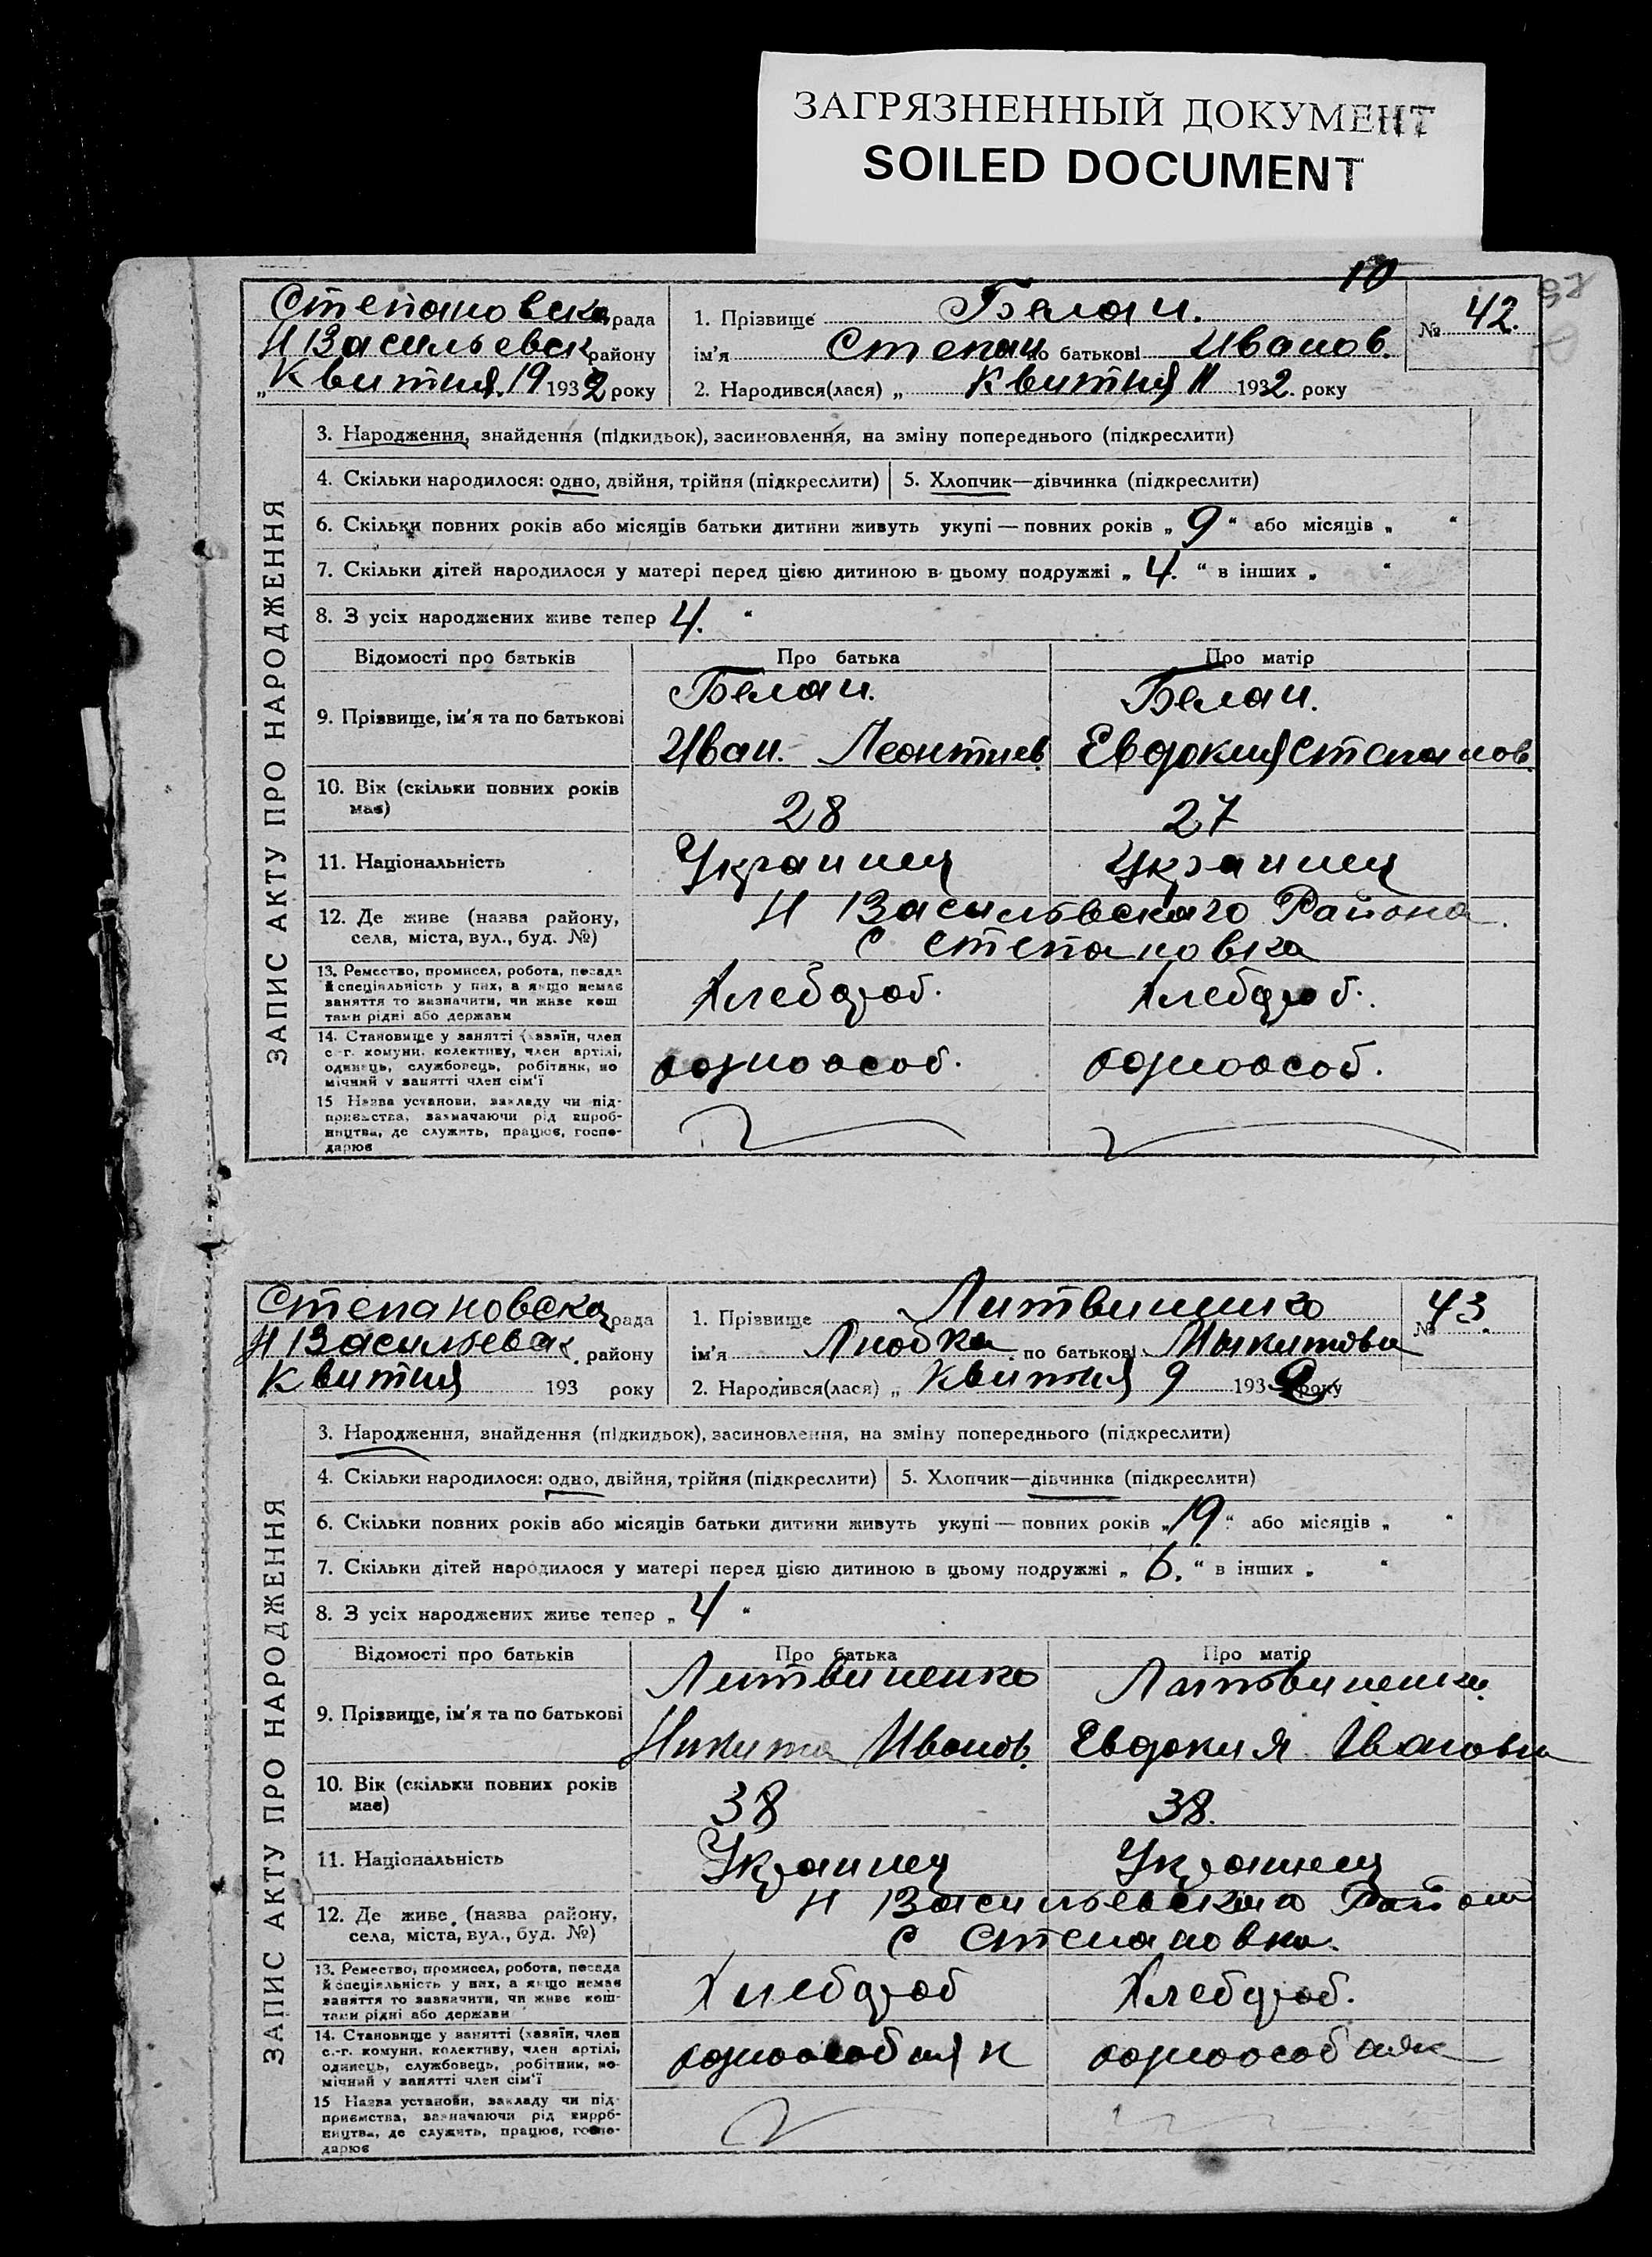 ЗАГРЯЗНЕННЫЙ ДОКУМЕНТ
SOILED DOCUMENT
10
Степановска рада
Н Васильевск району
„ Квитня. 19 1932 року
1. Прізвище Белан.
ім'я Степан по батькові Иванов.
2. Народився(лася) „ Квитня 11 1932. року
№ 42.
ЗАПИС АКТУ ПРО НАРОДЖЕННЯ
3. Народження, знайдення (підкидьок), засиновлення, на зміну попереднього (підкреслити)
4. Скільки народилося: одно, двійня, трійня (підкреслити) 5. Хлопчик—дівчинка (підкреслити)
6. Скільки повних років або місяців батьки дитини живуть укупі — повних років „ 9 “ або місяців „ “
7. Скільки дітей народилося у матері перед цією дитиною в цьому подружжі „ 4. “ в інших „ “
8. З усіх народжених живе тепер 4. “
Відомості про батьків Про батька Про матір
9. Прізвище, ім'я та по батькові
Белан. Белан.
Иван. Леонтиев. Евдокия Степанов.
10. Вік (скільки повних років
має)
28 27
11. Національність Украинец Украинец
12. Де живе (назва району,
села, міста, вул., буд. №)
Н Васильевского Района.
С Степановка
13. Ремество, промисел, робота, посада
й спеціяльність у них, а якщо немає
заняття то визначити, чи живе кош
тами рідні або держави
Хлебороб. Хлебороб.
14. Становище у занятті (хазяїн, член
с.-г. комуни, колективу, член артілі,
одинець, службовець, робітник, по
мічний у занятті член сім'ї
одноособ. одноособ.
15 Назва установи, закладу чи під-
приємства, зазначаючи рід вироб-
ництва, де служить, працює, госпо-
дарює
Степановска рада
Н Васильевск. району
Квитня 193 року
1. Прізвище Литвиненко
ім'я Любка по батькові Мыкитовн
2. Народився(лася) „ Квитня 9 1932 року
№ 43.
ЗАПИС АКТУ ПРО НАРОДЖЕННЯ
3. Народження, знайдення (підкидьок), засиновлення, на зміну попереднього (підкреслити)
4. Скільки народилося: одно, двійня, трійня (підкреслити) 5. Хлопчик—дівчинка (підкреслити)
6. Скільки повних років або місяців батьки дитини живуть укупі — повних років „ 19 “ або місяців „ “
7. Скільки дітей народилося у матері перед цією дитиною в цьому подружжі „ 6. “ в інших „ “
8. З усіх народжених живе тепер „ 4 “
Відомості про батьків Про батька Про матір
9. Прізвище, ім'я та по батькові
Литвиненко Литвиненко
Никита Иванов. Евдокия Ивановн
10. Вік (скільки повних років
має)
38 38.
11. Національність Украинец Украинец
12. Де живе (назва району,
села, міста, вул., буд. №)
Н Васильевского Район
С Степановка.
13. Ремество, промисел, робота, посада
й спеціяльність у них, а якщо немає
заняття то зазначити, чи живе кош-
тами рідні або держави
Хлебороб Хлебороб.
14. Становище у занятті (хазяїн, член
с.-г. комуни, колективу, член артілі,
одинець, службовець, робітник, по-
мічний у занятті член сім'ї
15 Назва установи, закладу чи під-
приємства, зазначаючи рід вироб-
ництва, де служить, працює, госпо-
дарює